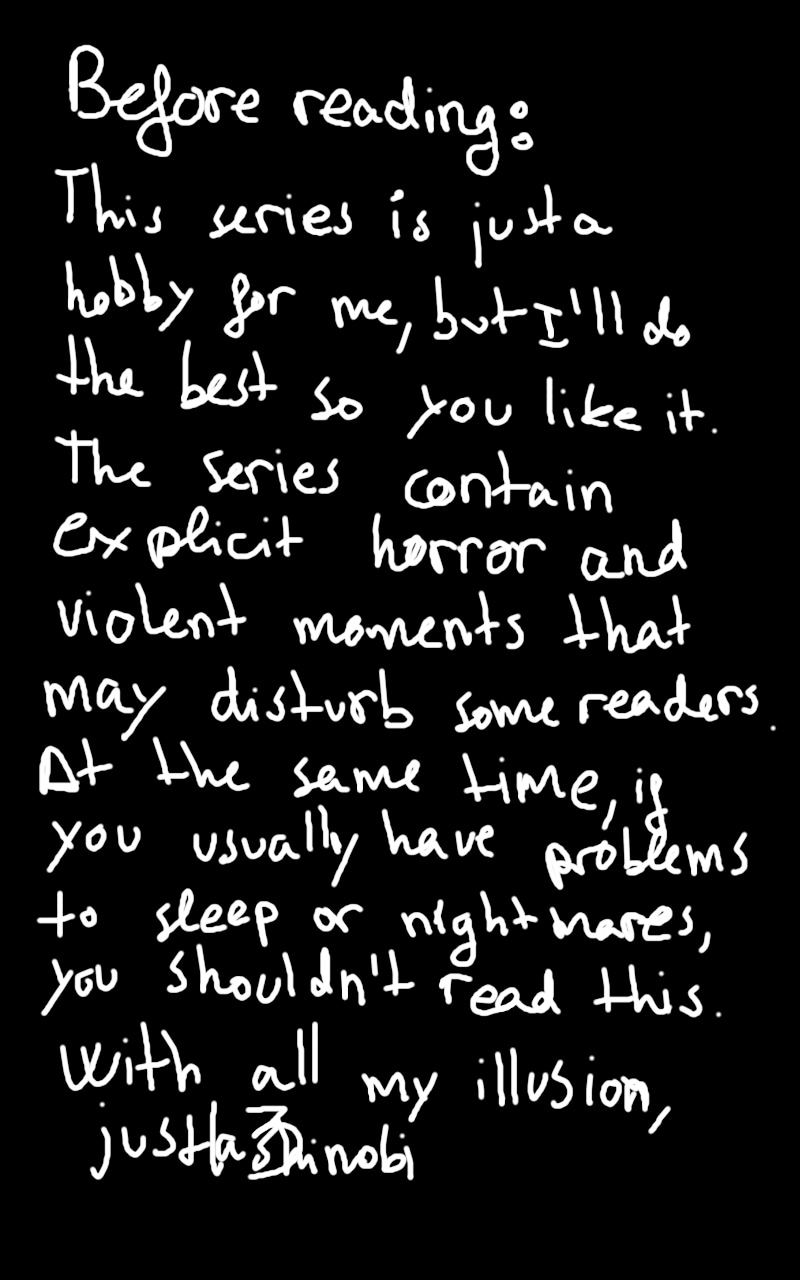 Before reading:
This series is just a
hobby for me, but I'll do
the best so you like it.
The series contain
explicit horror and
violent moments that
may disturb some readers.
At the same time, if
you usually have problems
to sleep or nightmares,
you shouldn't read this.
With all my illusion,